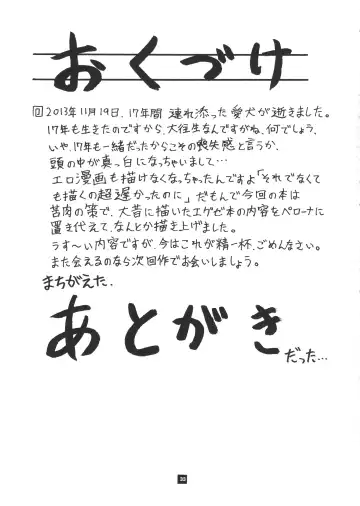 おくづけ
回2013年11月19日、17年間 連れ添った愛犬が逝きました。
17年も生きたのですから、大往生なんですがね、何でしょう、
いや、17年も一緒だったからこその喪失感と言うか、
頭の中が真っ白になっちゃいまして…
エロ漫画も描けなくなっちゃったんですよ「それでなくて
も描くの超遅かったのに」だもんで今回の本は
苦肉の策で、大昔に描いたエゲビ本の内容をペローナに
置き代えて、なんとか描き上げました。
うす〜い内容ですが、今はこれが精一杯、ごめんなさい。
また会えるのなら次回作でお会いしましょう。
まちがえた、
あとがき
だった…
30